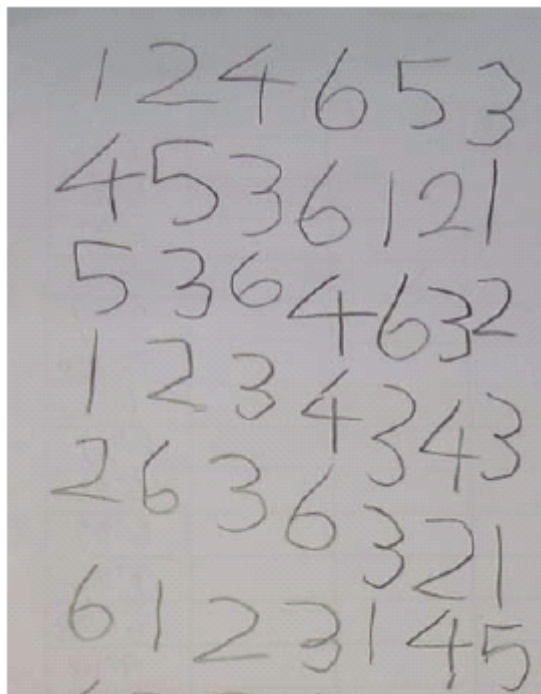 1 2 4 6 5 3
4 5 3 6 1 2 1
5 3 6 4 6 3 2
1 2 3 4 3 4 3
2 6 3 6 3 2 1
6 1 2 3 1 4 5